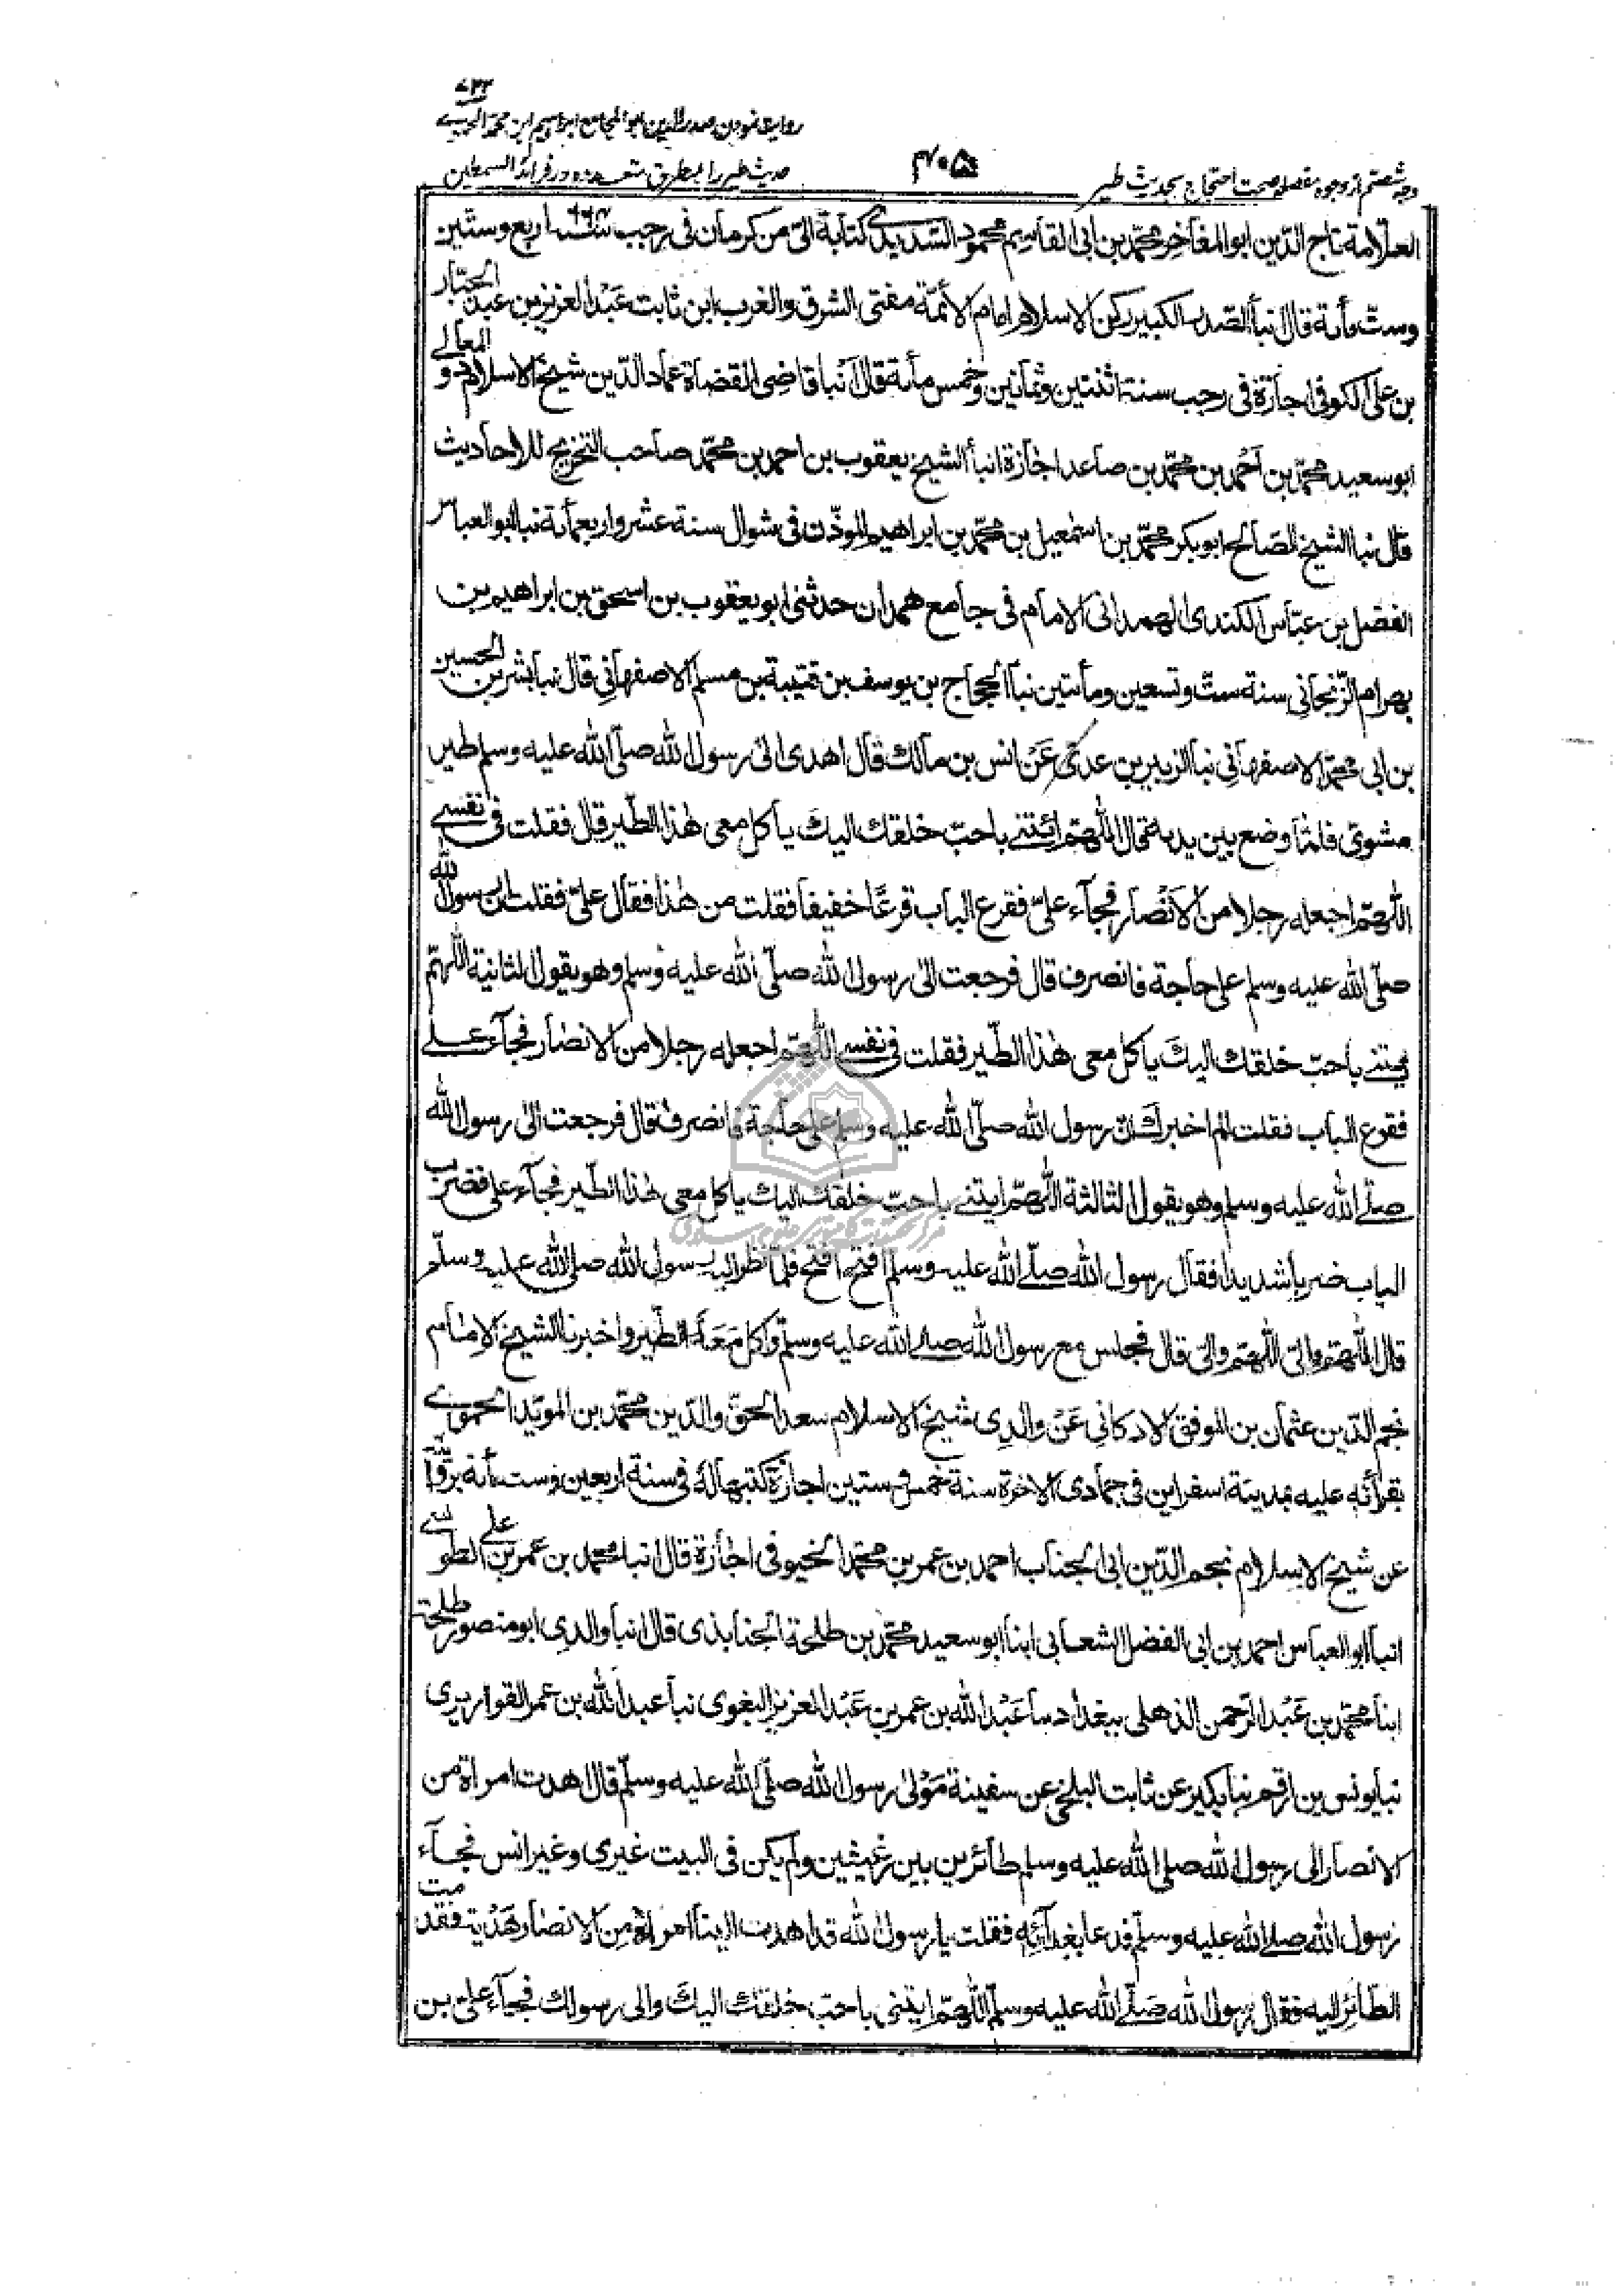 ۷۳۳
روایت نمودن صدر الدین ابو المجامع ابراهیم ابن محمد الحموینی
حدیث طیر را بطرق متعدده در فرائد السمطین
۴۰۵
وجه شصتم از وجوه مفصله صحت احتجاج بحدیث طیر
العلّامة تاج الدّین ابو المفاخر محمّد بن ابی القاسم محمود السّدیدی کتابة الیّ من کرمان فی رجب سنة ۶۶۴ اربع وستّین
وستّ مأئة قال نبأ الصّدر الکبیر رکن الاسلام امام الأئمّة مفتی الشرق والغرب ابن ثابت عبد العزیز بن عبد الجبّار
بن علی الکوفی اجازة فی رجب سنة اثنتین وثمانین وخمس مأئة قال أنبا قاضی القضاة عماد الدّین شیخ الاسلام ذو المعالی
ابو سعید محمّد بن أحمد بن محمّد بن صاعد اجازة انبأ الشیخ یعقوب بن احمد بن محمّد صاحب التخریج للاحادیث
قال نبا الشیخ الصّالح ابو بکر محمّد بن اسمعیل بن محمّد بن ابراهیم الموذّن فی شوال سنة عشر واربعمأئة نبا ابو العباس
الفضل بن عبّاس الکندی الهمدانی الامام فی جامع همدان حدثنی ابو یعقوب بن اسحق بن ابراهیم بن
بهرام الزّنجانی سنة ستّ وتسعین ومأتین نبأ الحجّاج بن یوسف بن قتیبة بن مسلم الاصفهانی قال نبأ بشر بن الحسین
بن ابی محمّد الاصفهانی نبأ الزبیر بن عدیّ عَنْ انس بن مالک قال اهدی الی رسول الله صلّی الله علیه وسلم طیر
مشویّ فلمّا وضع بین یدیه قال اللّهمّ ائتنی باحبّ خلقک الیکَ یأکل معی هذا الطّیر قال فقلت فی نفسی
اللّهمّ اجعله رجلا من الأنصار فجآء علیّ فقرع الباب قرعًا خفیفا فقلت من هذا فقال علیّ فقلت انّ رسول الله
صلّی الله علیه وسلم علی حاجة فانصرف قال فرجعت الی رسول الله صلّی الله علیه وسلم وهو یقول الثانیة اللّهمّ
ائتنی باحبّ خلقک الیکَ یاکل معی هذا الطّیر فقلت فی نفسی اللّهمّ اجعله رجلا من الانصار فجآء علی
فقرع الباب فقلت الم اخبرک انّ رسول الله صلّی الله علیه وسلم علی حاجة فانصرف قال فرجعت الی رسول الله
صلّی الله علیه وسلم وهو یقول الثالثة اللّهمّ ایتنی باحبّ خلقک الیک یأکل معی هذا الطّیر فجآء علی فضرب
الباب ضربا شدیدا فقال رسول الله صلّی الله علیه وسلم افتح افتح فلمّا نظر الیه رسول الله صلی الله علیه وسلّم
قال اللّهمّ والیّ اللّهمّ والیّ قال فجلس مع رسول الله صلی الله علیه وسلّم واکل مَعَهُ الطّیر واخبرنا الشیخ الامام
نجم الدّین عثمان بن الموفق الادکانی عَنْ والدی شیخ الاسلام سعد الحقّ والدّین محمّد بن المویّد الحموی
بقرائه علیه بمدینة اسفراین فی جمادی الاخرة سنة خمس و ستین اجازة کتبها له فی سنة اربعین وست مأئة
عن شیخ الاسلام نجم الدّین ابی الجناب احمد بن عمر بن محمّد الخیوفی اجازة قال انبا محمّد بن عمر بن علی الطوسی
انبأ ابو العباس احمد بن ابی الفضل الشعابی ابنا ابو سعید محمّد بن طلحة الجنابذی قال انبأ والدی ابو منصور طلحة
ابنا محمّد بن عَبْد الرّحمن الذهلی ببغداد نبأ عَبْد الله بن عمر بن عَبْد العزیز البغوی نبأ عبد الله بن عمر القواریری
نبأ یونس بن ارقم نبأ بکیر عن ثابت البلخی عن سفینة مَوْلیٰ رسول الله صلّی الله علیه وسلّم قال اهدت امراة من
الانصار الی رسول الله صلی الله علیه وسلم طائرین بین رغیفین ولم یکن فی البیت غیری وغیر انس فجآء
رسول الله صلی الله علیه وسلّم فدعا بغدآئه فقلت یا رسول الله قد اهدت الینا امراة من الانصار هَدْیة فقدمت
الطّائر الیه فقال رسول الله صَلّی الله علیه وسلّم اللّهمّ ایتنی باحبّ خلقک الیک والی رسولک فجآء علیّ بن
مرکز تحقیقات کامپیوتری علوم اسلامی